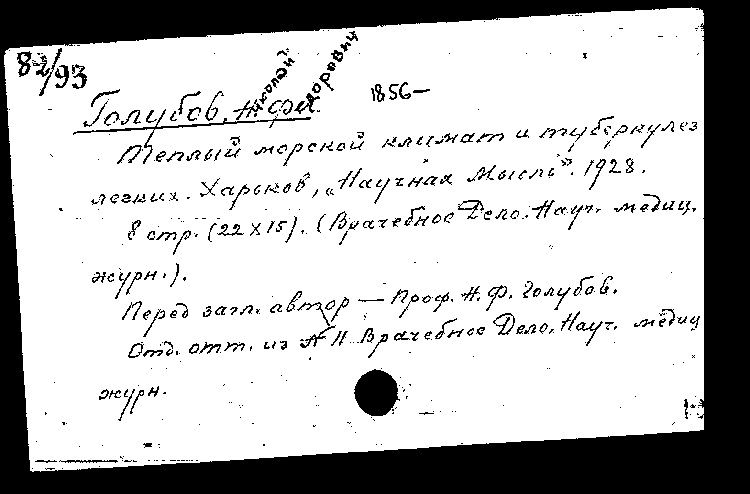 82/93
Голубов, Н. Ф. 1856—
Николай
Теплый морской климат и туберкулез
легких. Харьков, „Научная Мысль". 1928.
8 стр. (22×15). (Врачебное Дело. Науч. медиц.
журн.).
Перед загл. автор — Проф. Н. Ф. Голубов.
Отд. отт. из Врачебное Дело. Науч. медиц
журн.